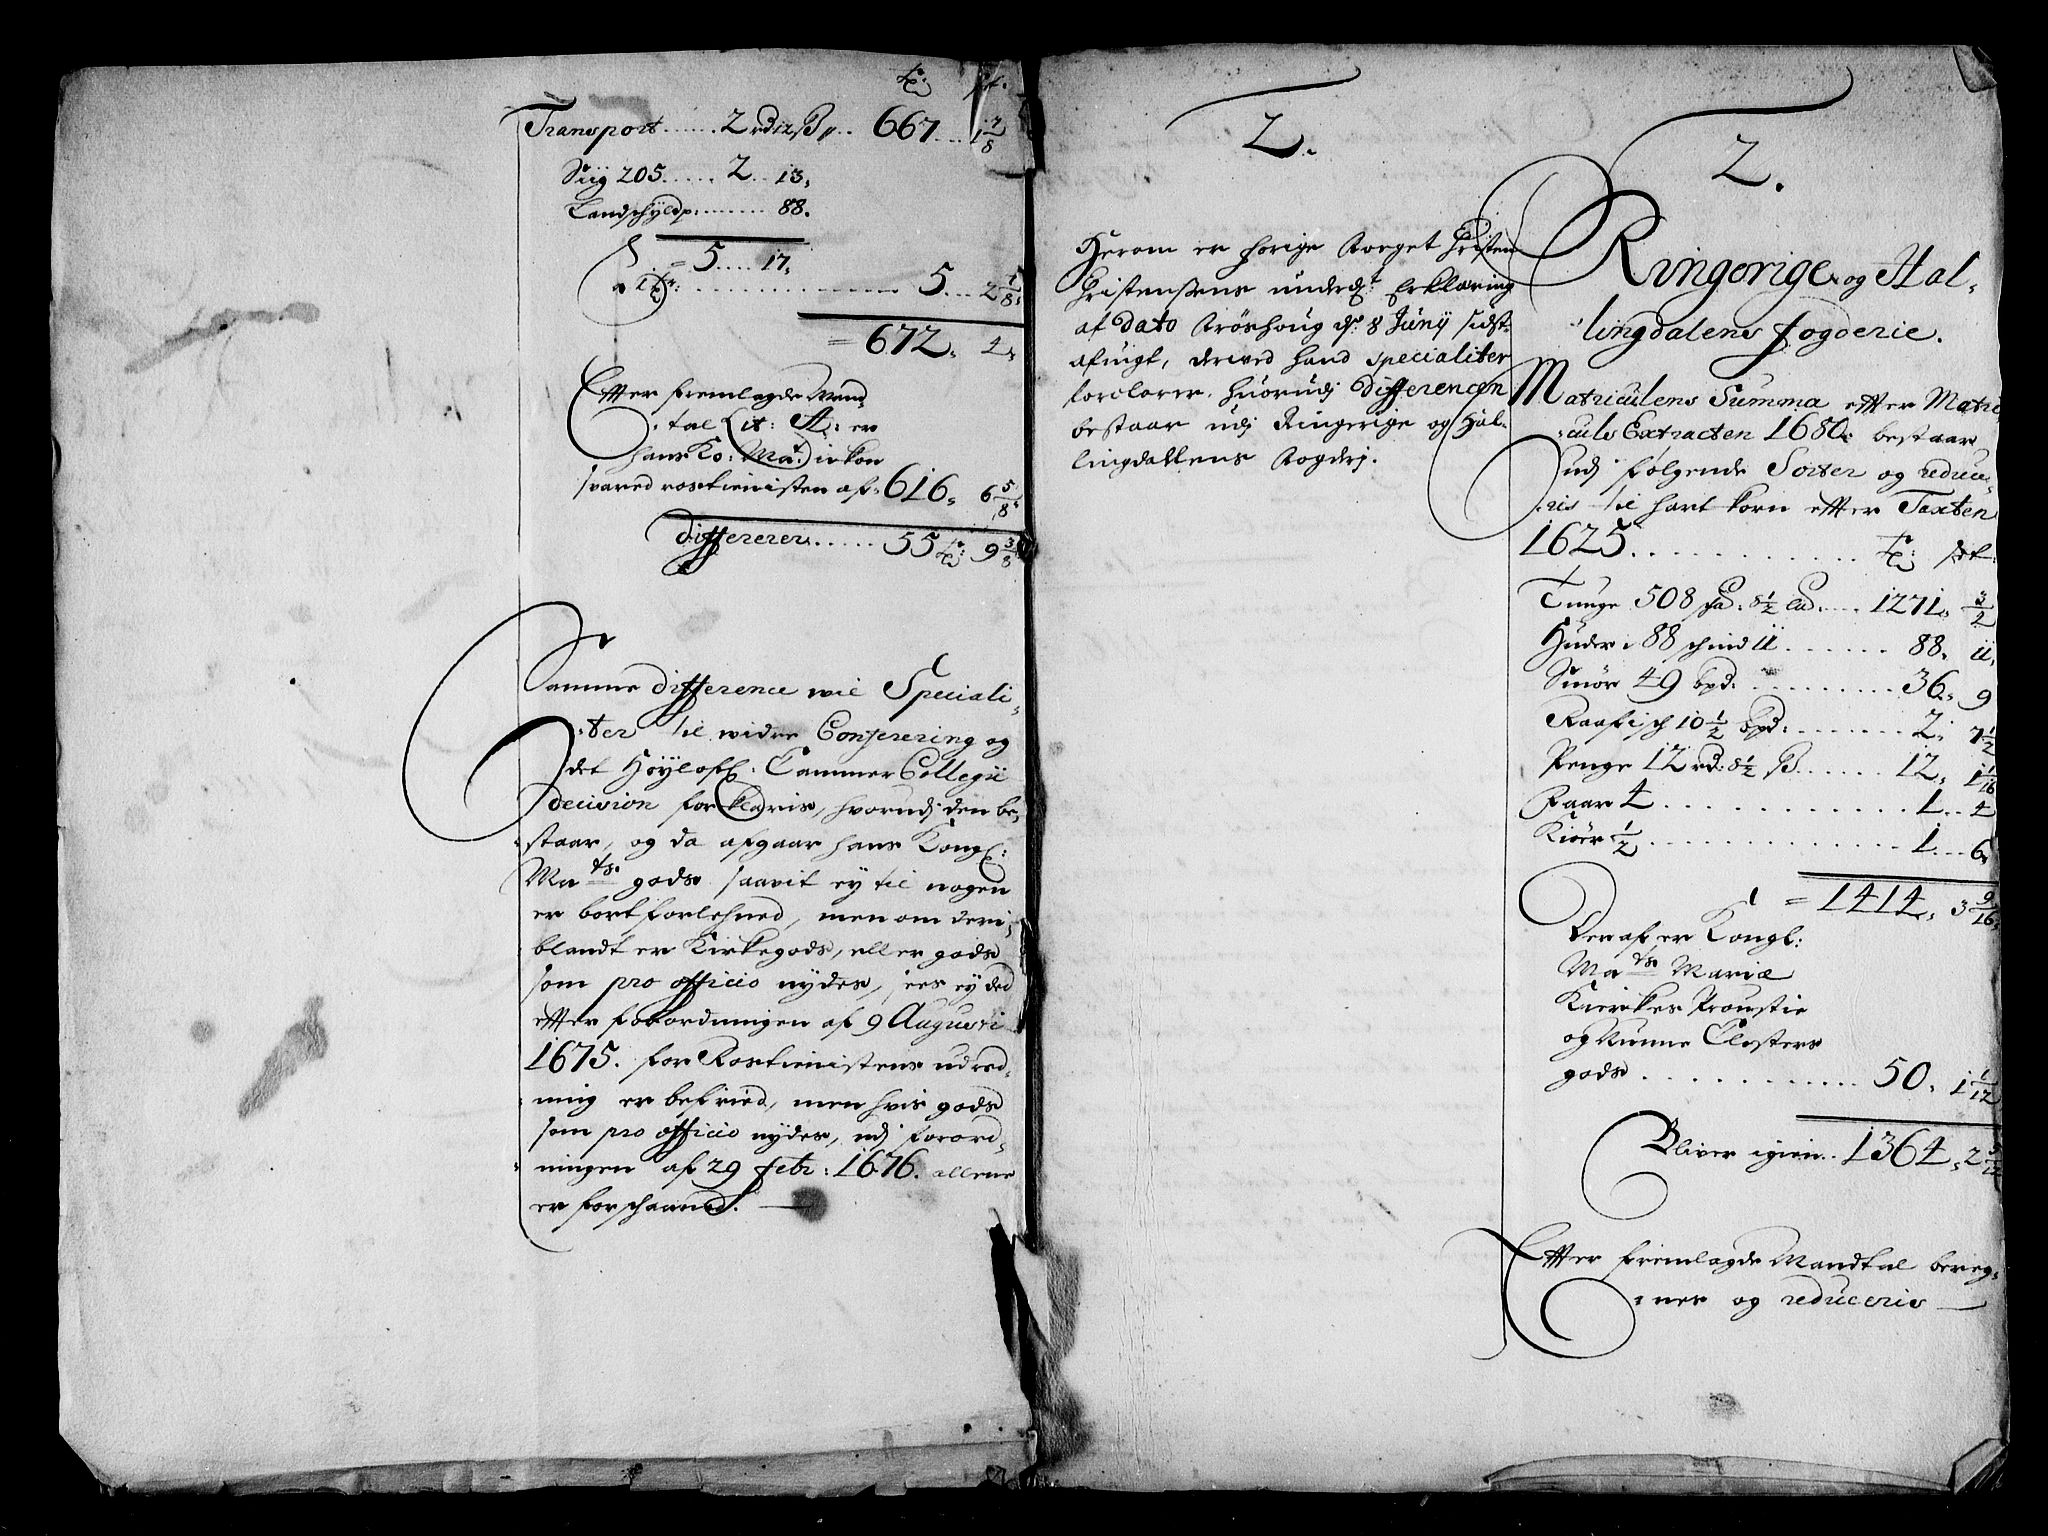 Tr: sk.
Transport ...... 2 rd 12 ß p .. 667 ... 1 7/8
Siig 205 ...... 2 .. 13,
Landschyldp: ........ 88.
= 5 .... 17,
a 1 Tr: ................ 5 ... 2 1/8,
= 672, 4,
Effter fremlagde Mand-
tal Lit: A: er
hans Ko: Ma:t: ickon
svared rostienisten af 616, 6 5/8,
differerer ...... 55 Tr: 9 3/8
Samme difference wil Speciali-
ter til widre Conferering og
det Høylofl: Cammer Collegii
decision forklaris, hvorudj den be-
staar, og da afgaar hans Kongl:
Ma:ts gods saavit ey til nogen
er bortforlehned, men om deri-
blandt er Kirkegods, eller gods
som pro officio nydes, sees ey ded
effter forordningen af 9 Augusti
1675. for Rostienistens udred-
ning er befried, men hvis gods
som pro officio nydes, udj forord-
ningen af 29 febr: 1676. allene
er forschaaned.
2.
Herom er forige foeget Christen
Christensens underd:t Erklæring
af dato Krøshoug d: 8 Junij sidst-
afuigt, derved hand specialiter
forclarer, huorudj differencen
bestaar udj Ringerige og Hal-
lingdallens fogdrj.
2.
Ringerige og Hal-
lingdalens fogderie.
Matriculens Summa effter Matri-
culs Extracten 1680 bestaar
udj følgende Sorter og reduce-
ris til hart korn effter Taxten
1625 ............ Tr: sk:
Tunge 508 pd: 8 1/2 lid: .... 1271, 3/2
Huder 88 schind 11 ...... 88, 11,
Smør 49 bpd: ......... 36, 9
Raafisch 10 1/2 bpd: ....... 2, 7 1/2
Penge 12 rd: 8 1/2 ß ...... 12, 1 1/16
Faar 4 ............ 1 .. 4
Kiør 1/2 ............ 1 ... 6
= 1414, 3 9/16,
Deraf er Kongl:
Ma:ts Mariæ
Kierckes Proustie
og Nunne Closters
gods ........... 50, 1 1/12
Bliver igien .. 1364, 2 5/12
Effter fremlagde Mandtal bereg-
nes og reduceris —